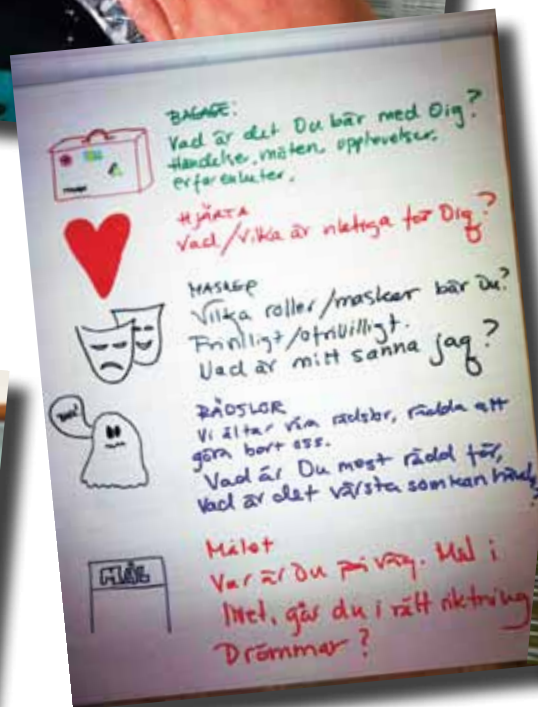 BAGAGE:
Vad är det Du bär med Dig?
Händelser, möten, upplevelser.
erfarenheter.
HJÄRTA
Vad/Vilka är viktiga för Dig?
MASKER
Vilka roller/masker bär Du?
Frivilligt/ofrivilligt.
Vad är mitt sanna jag?
RÄDSLOR
Vi ältar våra rädslor, rädda att
göra bort oss.
Vad är Du mest rädd för,
Vad är det värsta som kan hända
?
MÅL
Målet
Var är Du på väg. Mål i
livet, går du i rätt riktning
Drömmar?